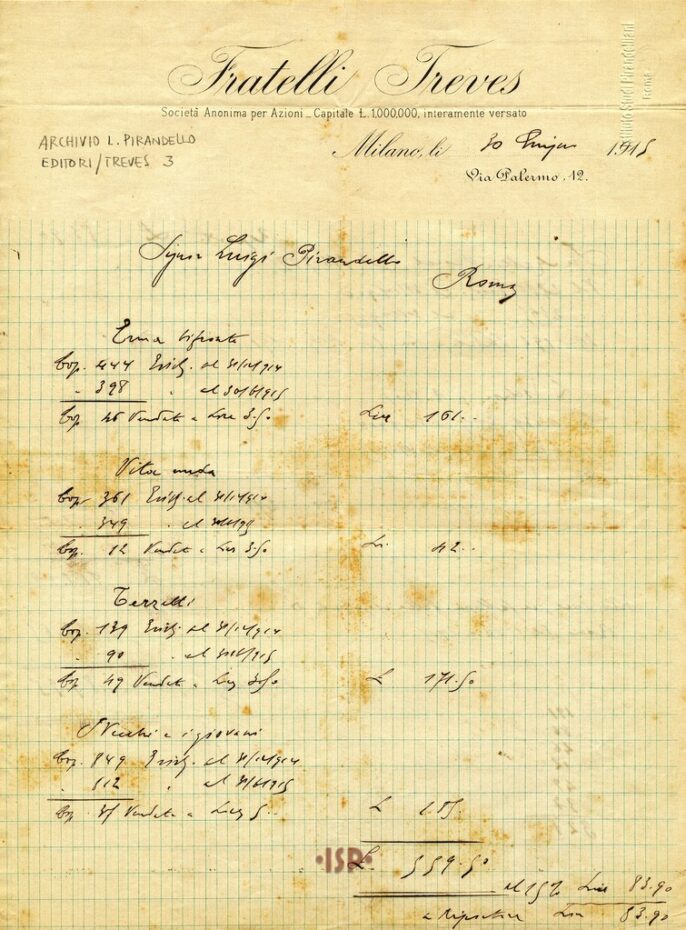 Fratelli Treves
Società Anonima per Azioni _ Capitale Ł. 1,000,000, interamente versato
ARCHIVIO L. PIRANDELLO
EDITORI/TREVES 3
Istituto Studi Pirandelliani
Roma
Milano, li 30 Giugno 1915
Via Palermo, 12.
Signor Luigi Pirandello
Roma
Erma bifronte
Cop. 444 Esist. al 31/12/914
" 398 " al 30/6/915
Cop. 46 Vendute a Lire 3.50 Lire 161..
Vita nuda
Cop. 361 Esist. al 31/12/914
" 349 " al
Cop. 12 Vendute a Lire 3.50 L. 42..
Terzetti
Cop. 139 Esist. al 31/12/914
" 90 " al 30/6/915
Cop. 49 Vendute a Lire 3.50 L 171.50
I Vecchi e i giovani
Cop. 849 Esist. al 31/12/914
" 812 " al
Cop. 37 Vendute a Lire 5.. L 185.
ISP
L. 559.50
al 15% Lire 83.90
a Riportare Lire 83.90